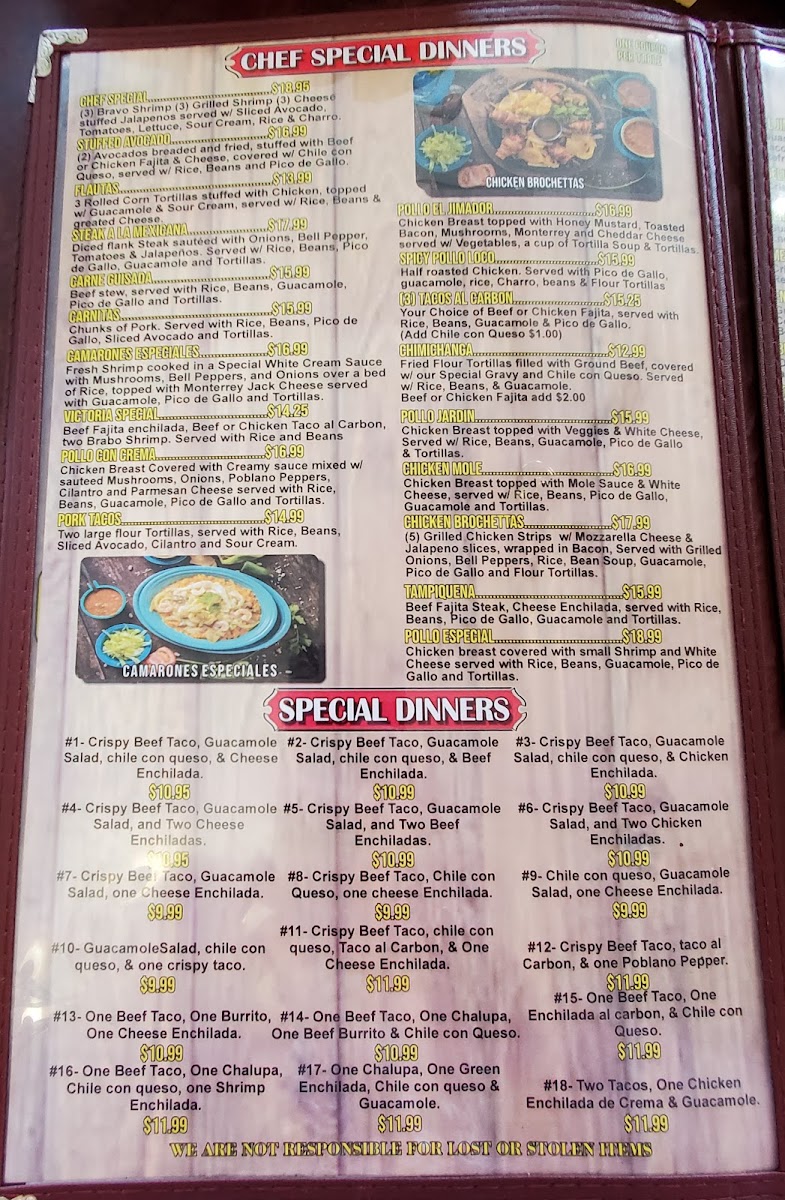 CHEF SPECIAL DINNERS
ONE COUPON
PER TABLE
CHEF SPECIAL....................$18.95
(3) Bravo Shrimp (3) Grilled Shrimp (3) Cheese
stuffed Jalapenos served w/ Sliced Avocado,
Tomatoes, Lettuce, Sour Cream, Rice & Charro.
STUFFED AVOCADO....................$16.99
(2) Avocados breaded and fried, stuffed with Beef
or Chicken Fajita & Cheese, covered w/ Chile con
Queso, served w/ Rice, Beans and Pico de Gallo.
FLAUTAS....................$13.99
3 Rolled Corn Tortillas stuffed with Chicken, topped
w/ Guacamole & Sour Cream, served w/ Rice, Beans &
greated Cheese.
STEAK A LA MEXICANA....................$17.99
Diced flank Steak sautéed with Onions, Bell Pepper,
Tomatoes & Jalapeños. Served w/ Rice, Beans, Pico
de Gallo, Guacamole and Tortillas.
CARNE GUISADA....................$15.99
Beef stew, served with Rice, Beans, Guacamole,
Pico de Gallo and Tortillas.
CARNITAS....................$15.99
Chunks of Pork. Served with Rice, Beans, Pico de
Gallo, Sliced Avocado and Tortillas.
CAMARONES ESPECIALES....................$16.99
Fresh Shrimp cooked in a Special White Cream Sauce
with Mushrooms, Bell Peppers, and Onions over a bed
of Rice, topped with Monterrey Jack Cheese served
with Guacamole, Pico de Gallo and Tortillas.
VICTORIA SPECIAL....................$14.25
Beef Fajita enchilada, Beef or Chicken Taco al Carbon,
two Brabo Shrimp. Served with Rice and Beans
POLLO CON CREMA....................$16.99
Chicken Breast Covered with Creamy sauce mixed w/
sauteed Mushrooms, Onions, Poblano Peppers,
Cilantro and Parmesan Cheese served with Rice,
Beans, Guacamole, Pico de Gallo and Tortillas.
PORK TACOS....................$14.99
Two large flour Tortillas, served with Rice, Beans,
Sliced Avocado, Cilantro and Sour Cream.
CAMARONES ESPECIALES
CHICKEN BROCHETTAS
POLLO EL JIMADOR....................$16.99
Chicken Breast topped with Honey Mustard, Toasted
Bacon, Mushrooms, Monterrey and Cheddar Cheese
served w/ Vegetables, a cup of Tortilla Soup & Tortillas.
SPICY POLLO LOCO....................$15.99
Half roasted Chicken. Served with Pico de Gallo,
guacamole, rice, Charro, beans & Flour Tortillas
(3) TACOS AL CARBON....................$15.25
Your Choice of Beef or Chicken Fajita, served with
Rice, Beans, Guacamole & Pico de Gallo.
(Add Chile con Queso $1.00)
CHIMICHANGA....................$12.99
Fried Flour Tortillas filled with Ground Beef, covered
w/ our Special Gravy and Chile con Queso. Served
w/ Rice, Beans, & Guacamole.
Beef or Chicken Fajita add $2.00
POLLO JARDIN....................$15.99
Chicken Breast topped with Veggies & White Cheese,
Served w/ Rice, Beans, Guacamole, Pico de Gallo
& Tortillas.
CHICKEN MOLE....................$16.99
Chicken Breast topped with Mole Sauce & White
Cheese, served w/ Rice, Beans, Pico de Gallo,
Guacamole and Tortillas.
CHICKEN BROCHETTAS....................$17.99
(5) Grilled Chicken Strips w/ Mozzarella Cheese &
Jalapeno slices, wrapped in Bacon, Served with Grilled
Onions, Bell Peppers, Rice, Bean Soup, Guacamole,
Pico de Gallo and Flour Tortillas.
TAMPIQUENA....................$15.99
Beef Fajita Steak, Cheese Enchilada, served with Rice,
Beans, Pico de Gallo, Guacamole and Tortillas.
POLLO ESPECIAL....................$18.99
Chicken breast covered with small Shrimp and White
Cheese served with Rice, Beans, Guacamole, Pico de
Gallo and Tortillas.
SPECIAL DINNERS
#1- Crispy Beef Taco, Guacamole
Salad, chile con queso, & Cheese
Enchilada.
$10.95
#2- Crispy Beef Taco, Guacamole
Salad, chile con queso, & Beef
Enchilada.
$10.99
#3- Crispy Beef Taco, Guacamole
Salad, chile con queso, & Chicken
Enchilada.
$10.99
#4- Crispy Beef Taco, Guacamole
Salad, and Two Cheese
Enchiladas.
$10.95
#5- Crispy Beef Taco, Guacamole
Salad, and Two Beef
Enchiladas.
$10.99
#6- Crispy Beef Taco, Guacamole
Salad, and Two Chicken
Enchiladas.
$10.99
#7- Crispy Beef Taco, Guacamole
Salad, one Cheese Enchilada.
$9.99
#8- Crispy Beef Taco, Chile con
Queso, one cheese Enchilada.
$9.99
#9- Chile con queso, Guacamole
Salad, one Cheese Enchilada.
$9.99
#10- GuacamoleSalad, chile con
queso, & one crispy taco.
$9.99
#11- Crispy Beef Taco, chile con
queso, Taco al Carbon, & One
Cheese Enchilada.
$11.99
#12- Crispy Beef Taco, taco al
Carbon, & one Poblano Pepper.
$11.99
#13- One Beef Taco, One Burrito,
One Cheese Enchilada.
$10.99
#14- One Beef Taco, One Chalupa,
One Beef Burrito & Chile con Queso.
$10.99
#15- One Beef Taco, One
Enchilada al carbon, & Chile con
Queso.
$11.99
#16- One Beef Taco, One Chalupa,
Chile con queso, one Shrimp
Enchilada.
$11.99
#17- One Chalupa, One Green
Enchilada, Chile con queso &
Guacamole.
$11.99
#18- Two Tacos, One Chicken
Enchilada de Crema & Guacamole.
$11.99
WE ARE NOT RESPONSIBLE FOR LOST OR STOLEN ITEMS